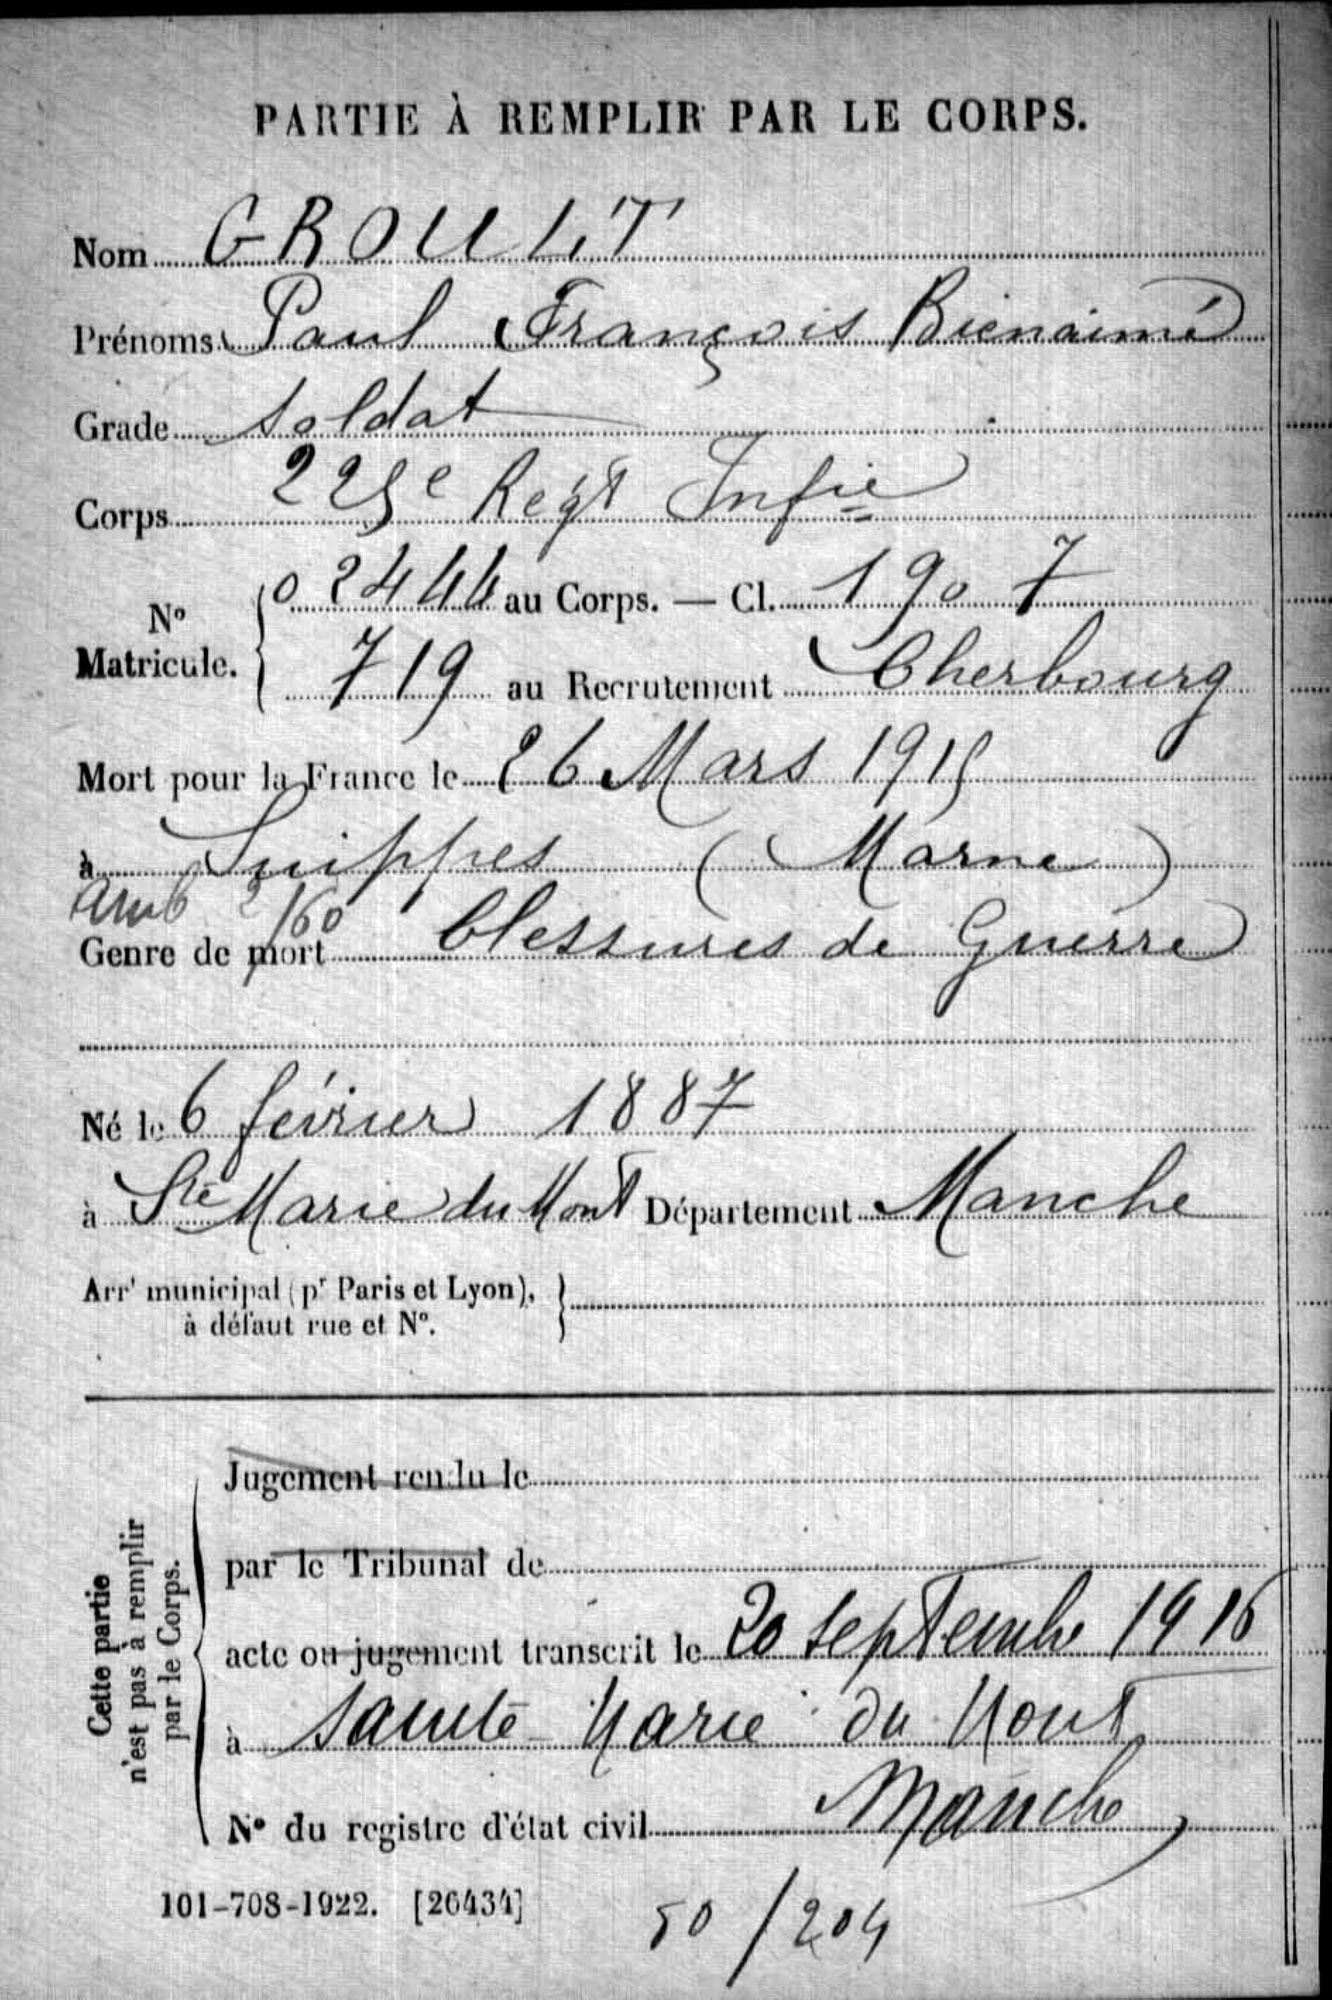 PARTIE À REMPLIR PAR LE CORPS.
Nom GROULT
Prénoms Paul François Bienaimé
Grade soldat
Corps 225e Regt Infie
No Matricule. 02444 au Corps. — Cl. 1907
719 au Recrutement Cherbourg
Mort pour la France le 26 Mars 1915
à Suippes (Marne)
Amb 2/60
Genre de mort blessures de Guerre
Né le 6 février 1887
à Ste Marie du Mont Département Manche
Arrt municipal (pr Paris et Lyon),
à défaut rue et No.
Cette partie
n'est pas à remplir
par le Corps.
Jugement rendu le
par le Tribunal de
acte ou jugement transcrit le 20 septembre 1916
à Sainte-Marie du Mont
No du registre d'état civil Manche
101-708-1922. [26434]
50/204